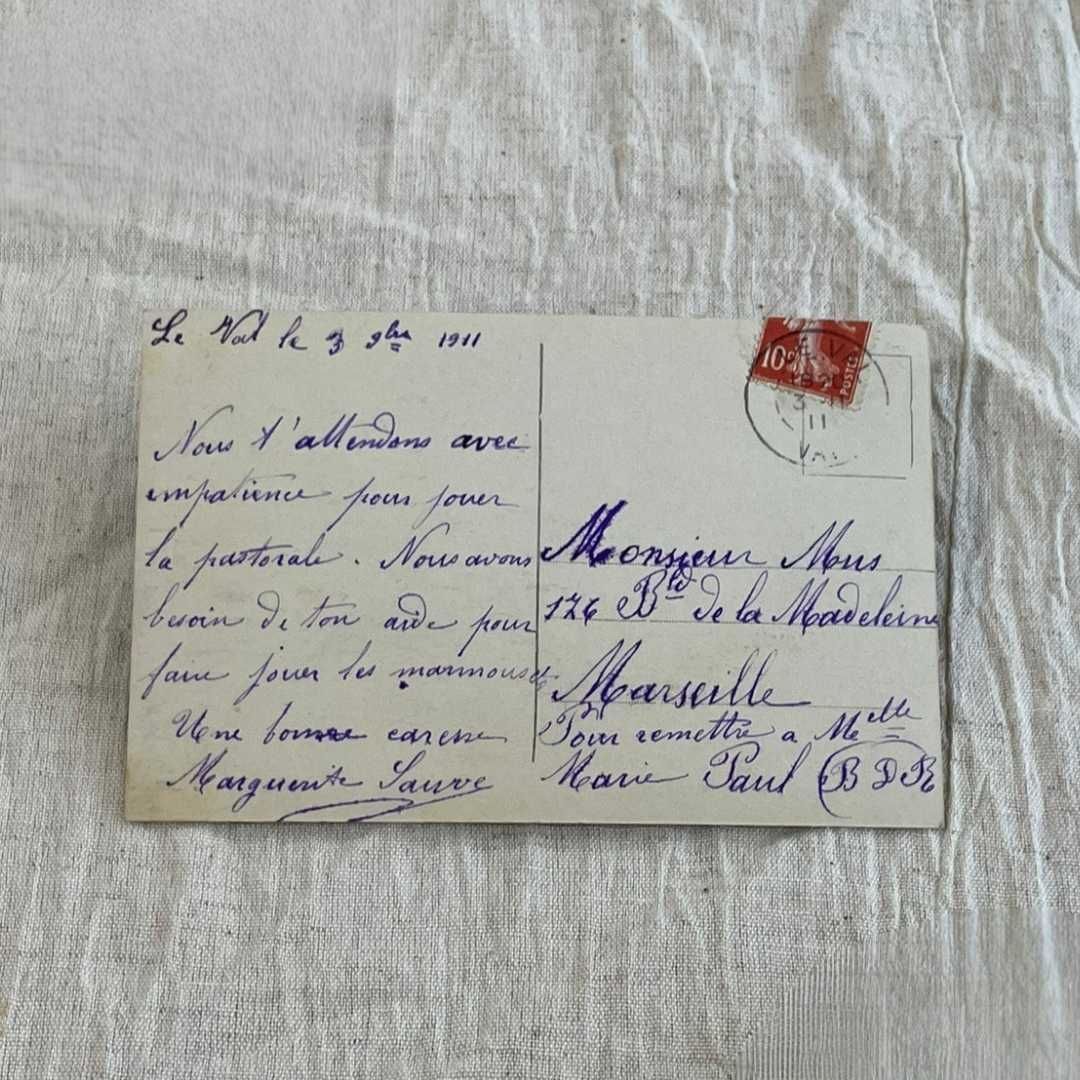 Le Val le 3 9bre 1911
Nous t'attendons avec
impatience pour jouer
la pastorale. Nous avons
besoin de ton aide pour
faire jouer les marmousets
Une bonne caresse
Marguerite Sauve
10c
POSTES
LE VAL
3
11
VAR
Monsieur Mus
126 Bld de la Madeleine
Marseille
Pour remettre a Melle
Marie Paul (B D R